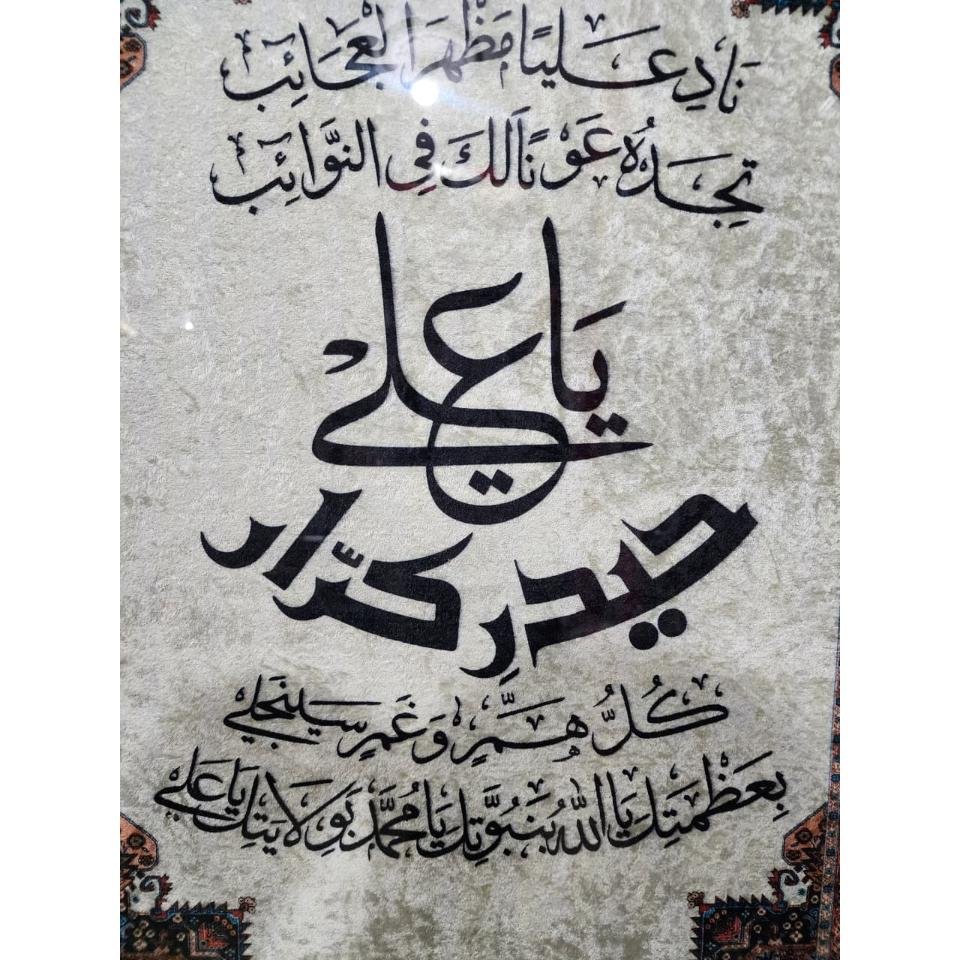 نَادِ عَلیًا مَظْهَرَ الْعَجَائِب
تَجِدْهُ عَوْنًا لَكَ فِی النَّوَائِب
یا علی
حیدرِ کرّار
كُلُّ هَمٍّ وَ غَمٍّ سَیَنْجَلِی
بِعَظَمَتِكَ یَا اللهُ بِنَبُوَّتِكَ یَا مُحَمَّدُ بِوَلَایَتِكَ یَا عَلِی